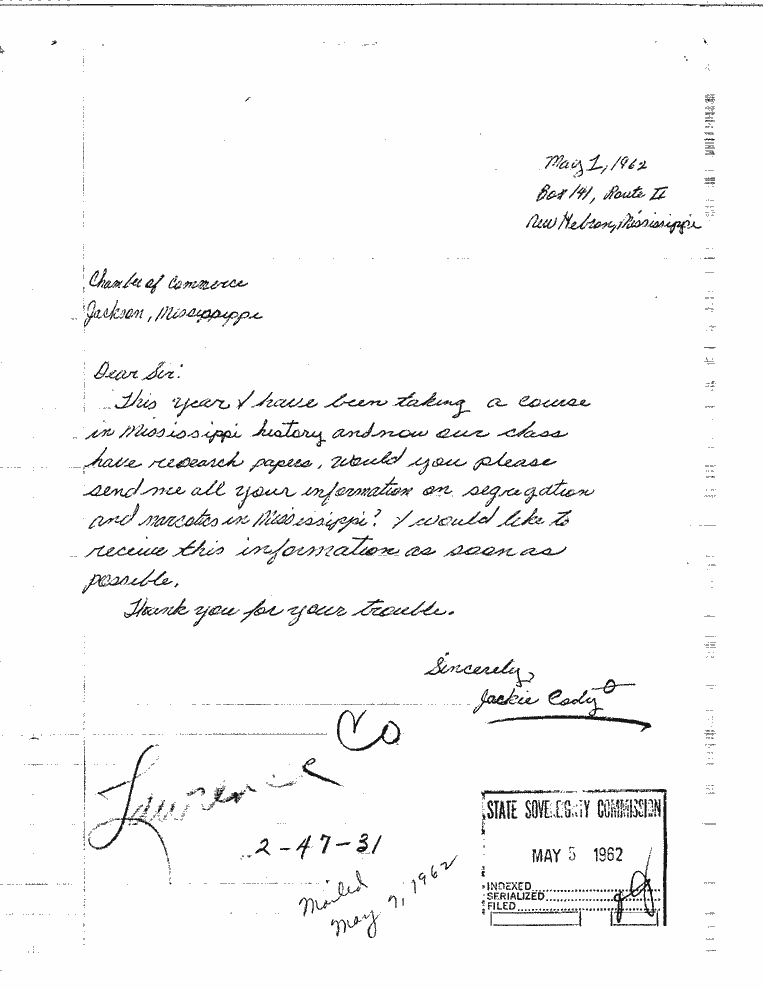 May 1, 1962
Box 141, Route II
New Hebron, Mississippi
Chamber of Commerce
Jackson, Mississippi
Dear Sir:
This year I have been taking a course
in Mississippi history and now our class
have research papers. Would you please
send me all your information on segregation
and narcotics in Mississippi? I would like to
receive this information as soon as
possible.
Thank you for your trouble.
Sincerely,
Jackie Cody
Lawrence Co
2-47-31
Mailed
May 7, 1962
STATE SOVEREIGNTY COMMISSION
MAY 5 1962
INDEXED
SERIALIZED
FILED